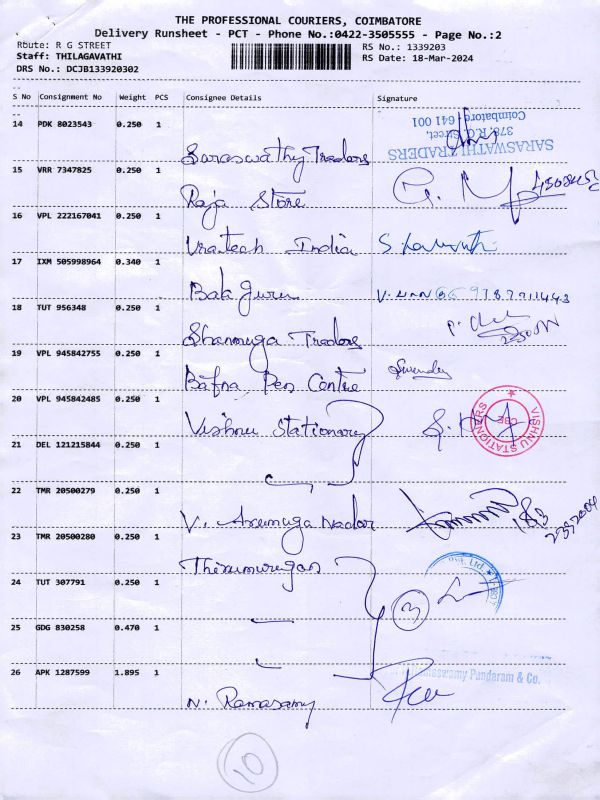 THE PROFESSIONAL COURIERS, COIMBATORE
Delivery Runsheet - PCT - Phone No.:0422-3505555 - Page No.:2
Route: R G STREET
RS No.: 1339203
Staff: THILAGAVATHI
RS Date: 18-Mar-2024
DRS No.: DCJB133920302
S No Consignment No Weight PCS Consignee Details Signature
14 PDK 8023543 0.250 1
Saraswathy Traders
SARASWATHI TRADERS
378, R.G. Street,
Coimbatore 641 001
15 VRR 7347825 0.250 1
Raja Store
16 VPL 222167041 0.250 1
India
17 IXM 505998964 0.340 1
Bala Guru
18 TUT 956348 0.250 1
Shanmuga Traders
19 VPL 945842755 0.250 1
Bafna Pen Centre
20 VPL 945842485 0.250 1
Vishnu Stationary
VISHNU STATIONERS
CBE
21 DEL 121215844 0.250 1
22 TMR 20500279 0.250 1
V. Arumuga Nadar
23 TMR 20500280 0.250 1
Thirumurugan
24 TUT 307791 0.250 1
3
25 GDG 830258 0.470 1
Pandaram & Co.
26 APK 1287599 1.895 1
N. Ramasamy
10